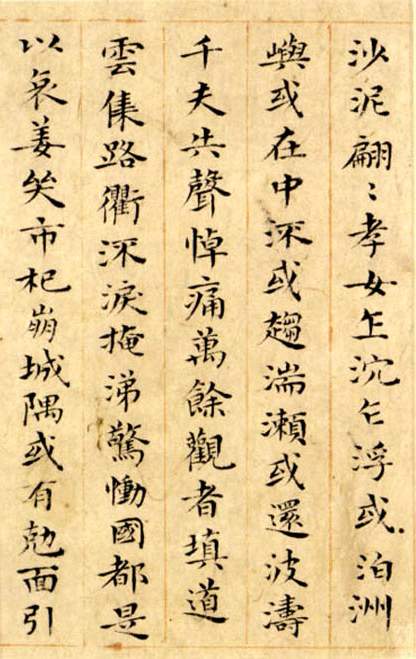 沙泥翩〻孝女乍沉乍浮或泊洲
嶼或在中流或趨湍瀨或還波濤
千夫失聲悼痛萬餘觀者填道
雲集路衢流淚掩涕驚慟國都是
以哀姜哭市杞崩城隅或有尅面引